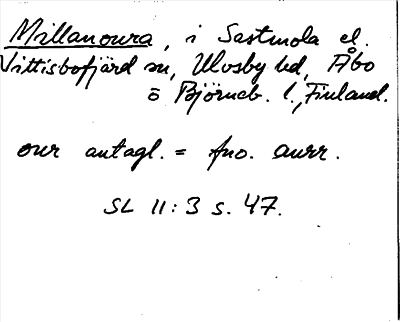 Millanoura, i Sastmola el.
Vittisbofjärd sn, Ulvsby hd, Åbo
o Björneb. l., Finland.
our antagl. = fno. aurr.
SL 11:3 s. 47.